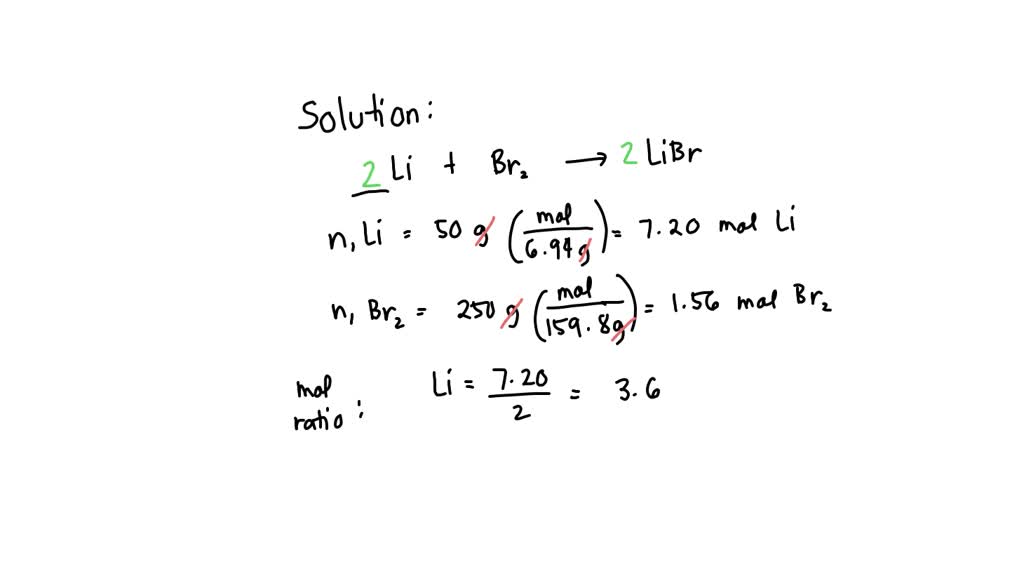 Solution:
2 Li + Br₂ → 2 LiBr
n, Li = 50 g (mol / 6.94 g) = 7.20 mol Li
n, Br₂ = 250 g (mol / 159.8 g) = 1.56 mol Br₂
mol ratio : Li = 7.20 / 2 = 3.6